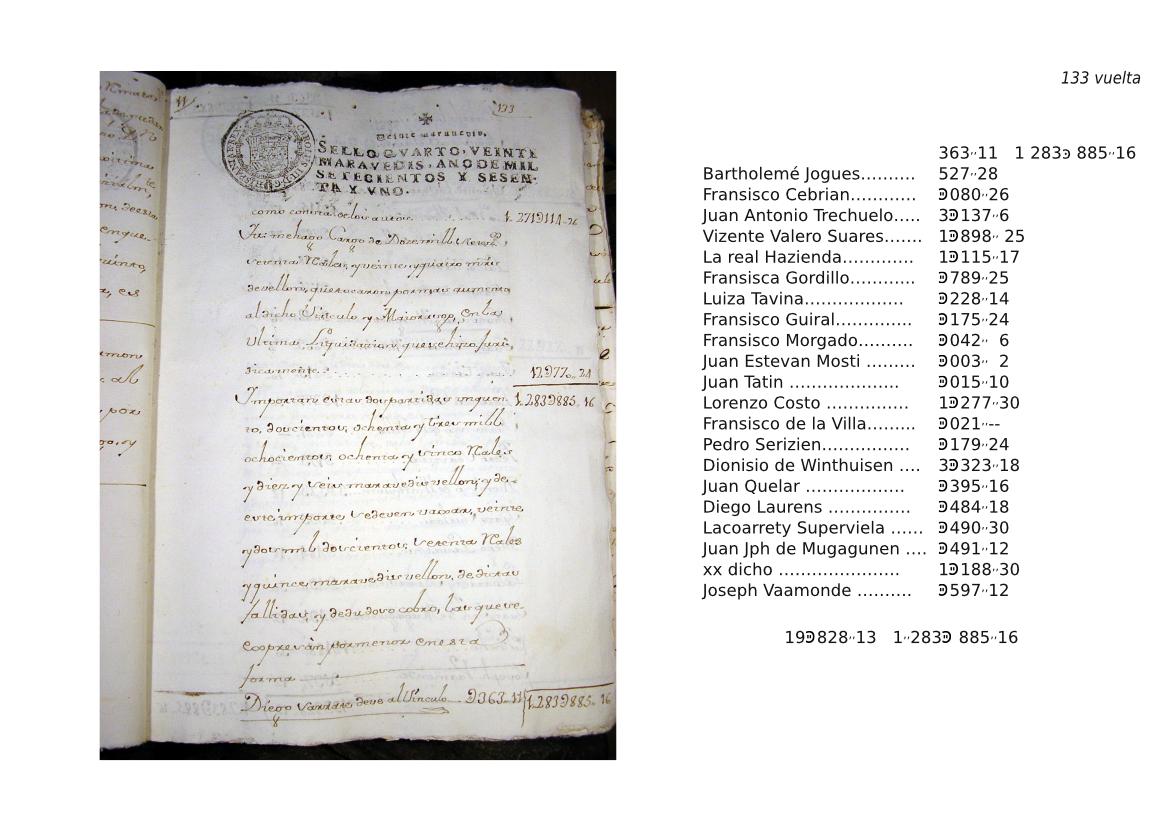 11
133
Veinte maravedis.
SELLO QVARTO, VEINTE
MARAVEDIS, AÑO DE MIL
SETECIENTOS Y SESEN-
TA Y VNO.
CAROLUS III D G HISPANIAR REX
como consta de los autos. 1.271Ͽ114-26
Ytt. me hago Cargo de Doze mill, Setez.
setenta Reales, y veinte y quatro mrs.
de vellon, que sacaron por mas aumento
al dicho Vinculo y Maiorazgo, en la
Ultima Liquidazion que se hizo juri-
dicamente. 12Ͽ77..24
Ymportan estas dos partidas un quen- 1.283Ͽ885.16
to, doscientos, ochenta y tres mill
ochocientos, ochenta y sinco Reales
y diez y seis maravedis vellon; y de
este importe se deven vaxar, veinte
y dos mil doscientos, setenta Reales
y quince maravedis vellon, de ditas
fallidas, y de dudoso cobro, las que se
expresaràn por menor en esta
forma
Diego deve al Vinculo Ͽ363.11 1.283Ͽ885.16
133 vuelta
363,,11 1 283Ͽ 885,,16
Bartholemé Jogues.......... 527,,28
Fransisco Cebrian............ Ͽ080,,26
Juan Antonio Trechuelo..... 3Ͽ137,,6
Vizente Valero Suares....... 1Ͽ898,, 25
La real Hazienda............. 1Ͽ115,,17
Fransisca Gordillo............ Ͽ789,,25
Luiza Tavina.................. Ͽ228,,14
Fransisco Guiral.............. Ͽ175,,24
Fransisco Morgado.......... Ͽ042,, 6
Juan Estevan Mosti ......... Ͽ003,, 2
Juan Tatin .................... Ͽ015,,10
Lorenzo Costo ............... 1Ͽ277,,30
Fransisco de la Villa......... Ͽ021,,--
Pedro Serizien................ Ͽ179,,24
Dionisio de Winthuisen .... 3Ͽ323,,18
Juan Quelar .................. Ͽ395,,16
Diego Laurens ............... Ͽ484,,18
Lacoarrety Superviela ...... Ͽ490,,30
Juan Jph de Mugagunen .... Ͽ491,,12
xx dicho ...................... 1Ͽ188,,30
Joseph Vaamonde .......... Ͽ597,,12
19Ͽ828,,13 1,,283Ͽ 885,,16